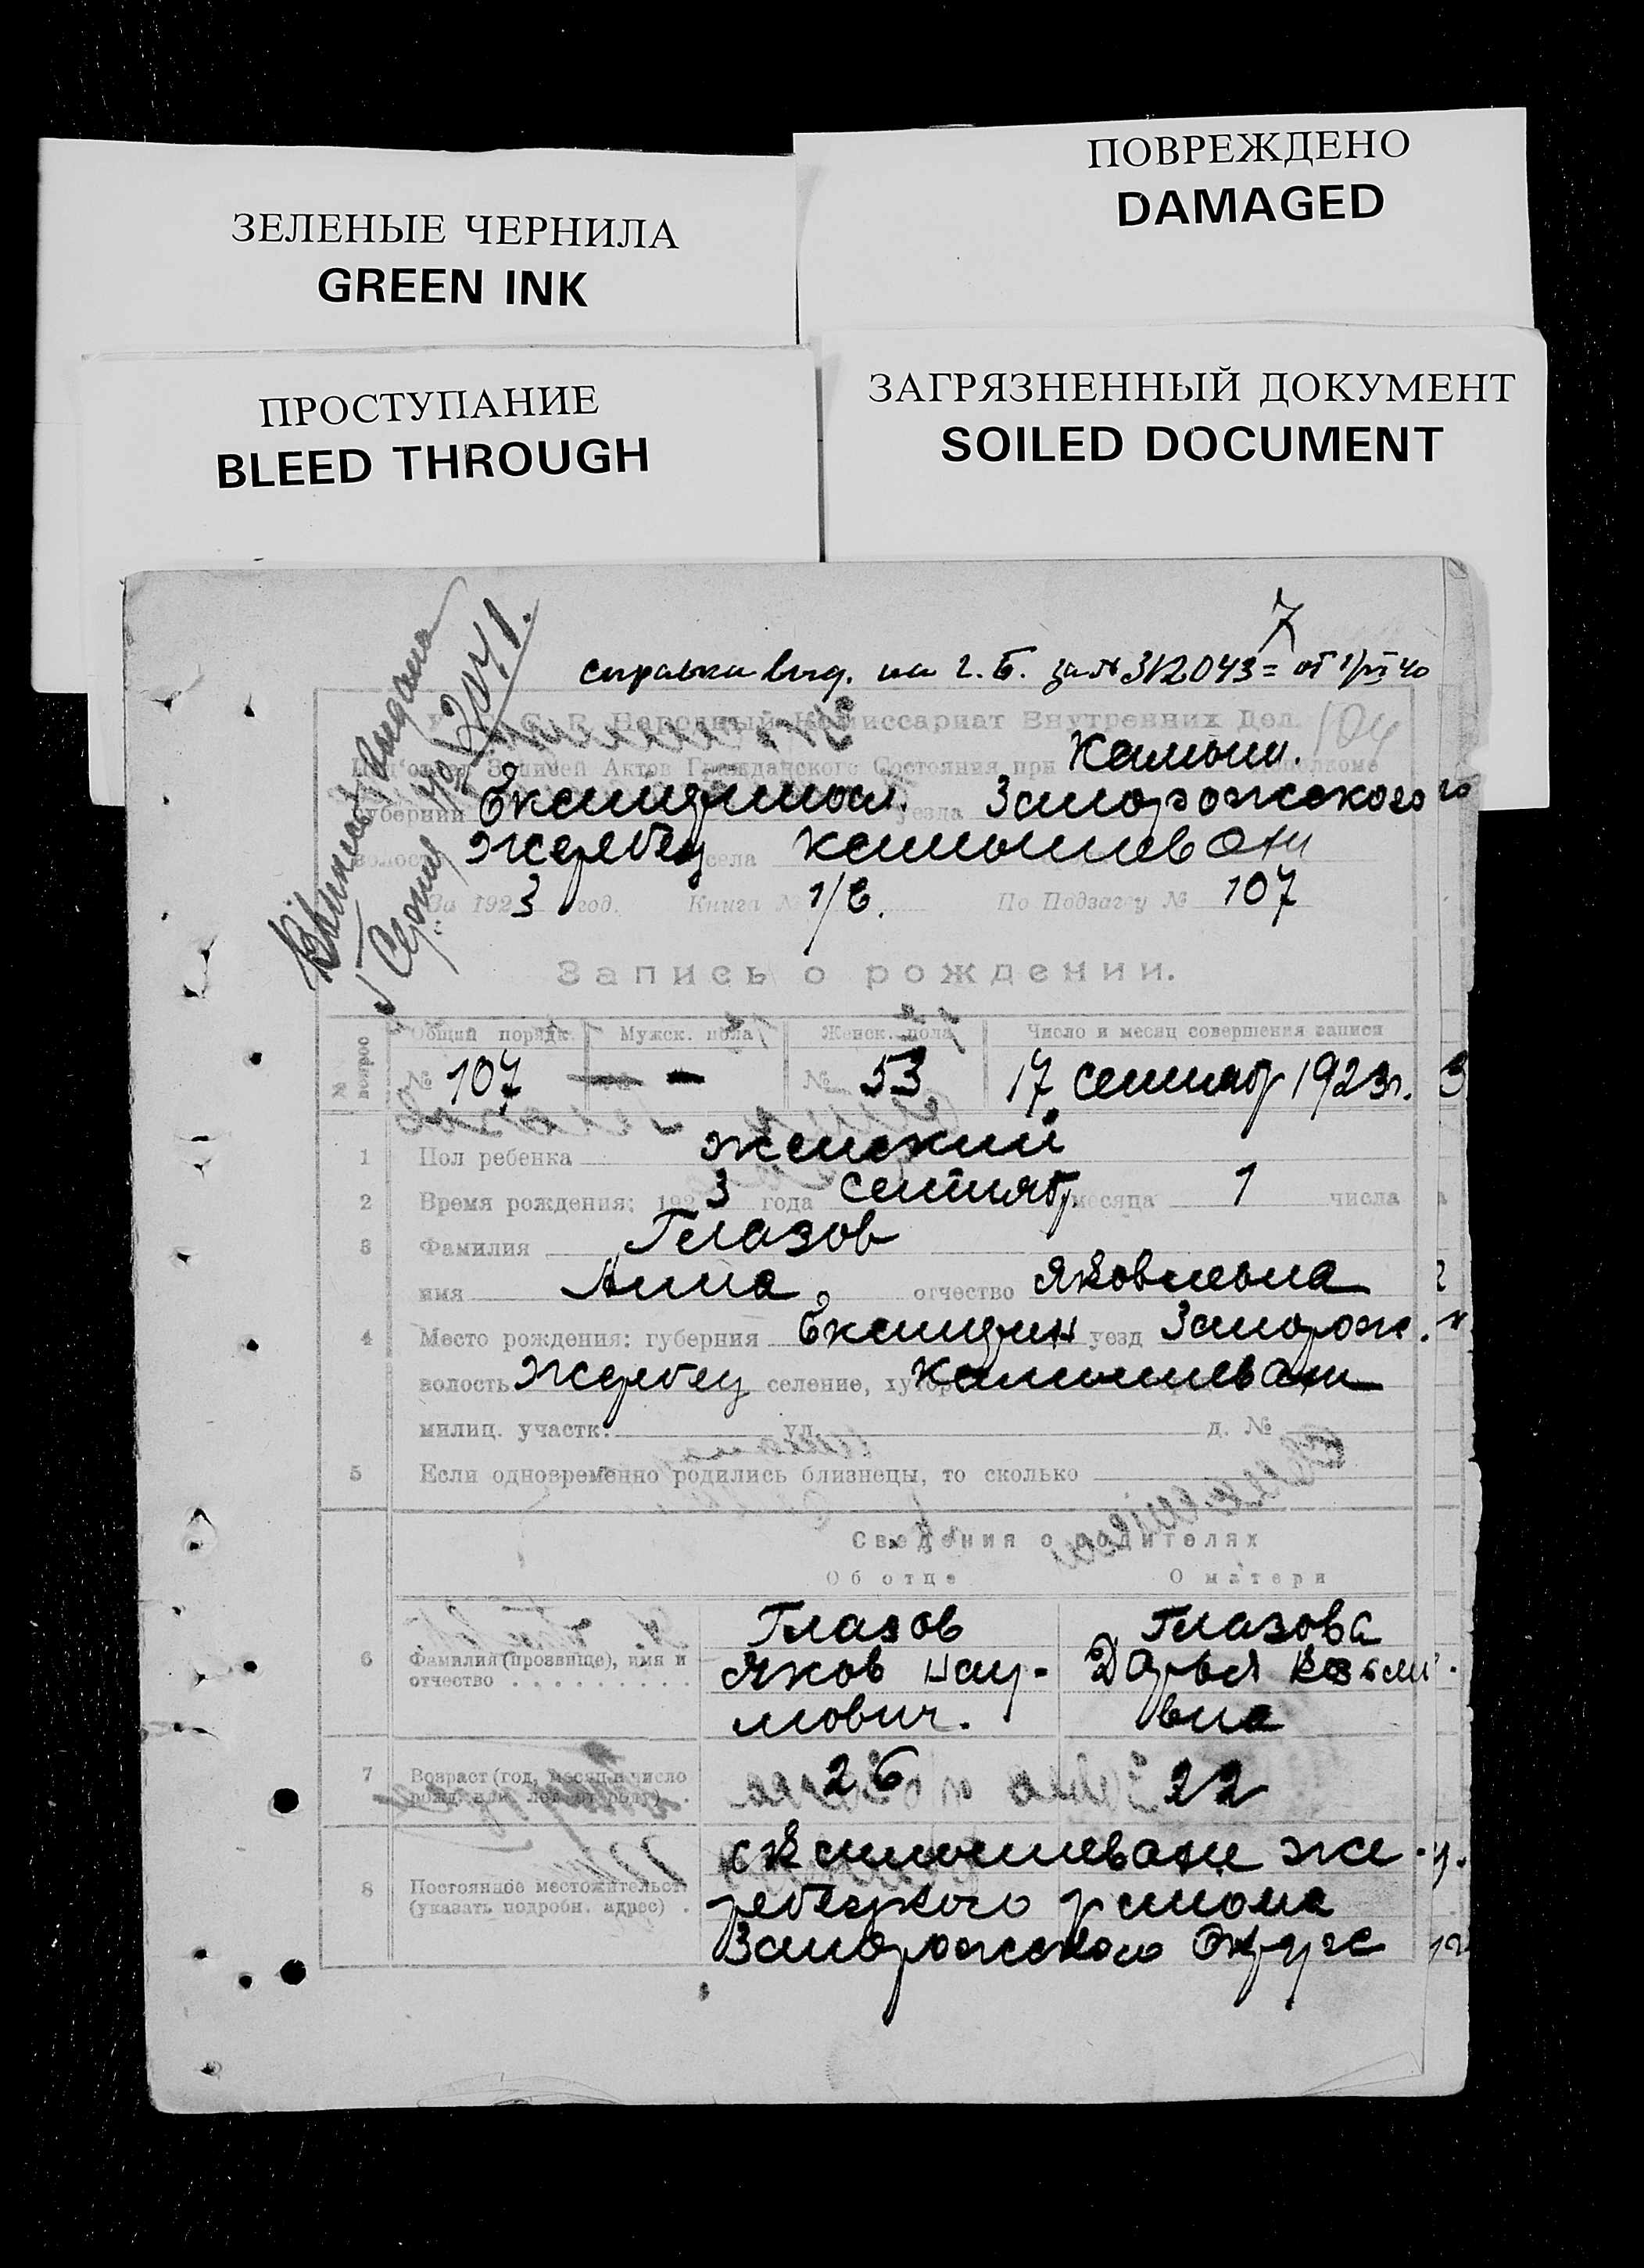 ПОВРЕЖДЕНО
DAMAGED
ЗЕЛЕНЫЕ ЧЕРНИЛА
GREEN INK
ЗАГРЯЗНЕННЫЙ ДОКУМЕНТ
SOILED DOCUMENT
ПРОСТУПАНИЕ
BLEED THROUGH
7
справка выд. на г. Б. за № 312043 = от
104
Народный Комиссариат Внутренних Дел.
Под'отдел Записей Актов Гражданского Состояния при Камыш.
губернии уезда Запорожского
волости Жеребец села Камышеваха
За 1923 год. Книга № 1/Б. По Подзагсу № 107
Выписка выдана
Серия
Запись о рождении.
№ вопрос
Общий порядк. Мужск. пола Женск. пола Число и месяц совершения записи
№ 107 № — № 53 17 сентябр 1923 г.
1 Пол ребенка женский
2 Время рождения: 1923 года сентябр месяца 1 числа
3 Фамилия Глазов
имя Анна, отчество Яковлевна
4 Место рождения: губерния уезд Запорож.
волость Жеребец селение, хутор
милиц. участк. ул. д. №
5 Если одновременно родились близнецы, то сколько
Сведения о родителях
Об отце О матери
6 Фамилия (прозвище), имя и отчество Глазов Яков Наумович. Глазова Дарья
7 Возраст (год, месяц и число 26 22
8 Постоянное местожительст. (указать подробн. адрес) Же-
ребецкого района
Запорожского Округа